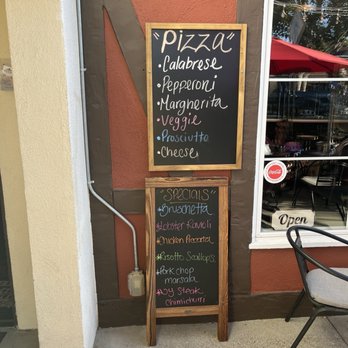 "Pizza"
•Calabrese
•Pepperoni
•Margherita
•Veggie
•Prosciutto
•Cheese
"Specials"
•Bruschetta
•Lobster Ravioli
•Chicken Piccata
•Risotto Scallops
•Pork chop
marsala
•NY Steak
Chimichurri
Coca-Cola
Open